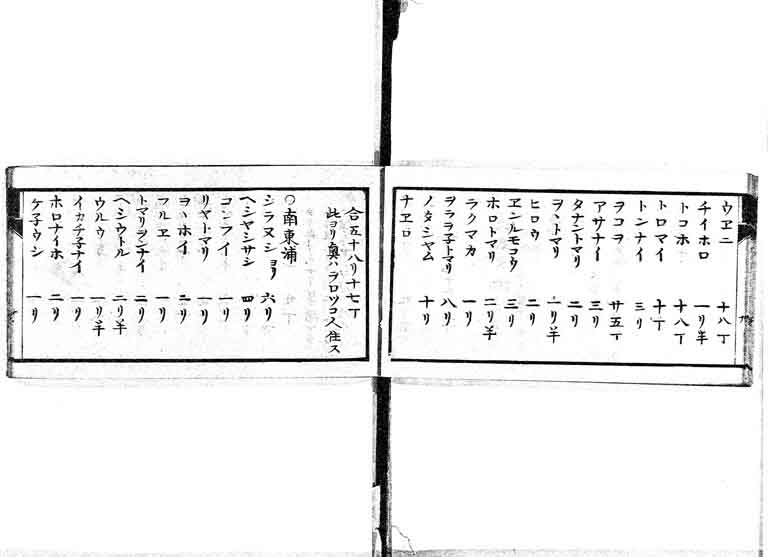 ウヱニ 十八丁
チイホロ 一リ半
トコホ 十八丁
トロマイ 十丁
トンナイ 三リ
アサナイ 三リ
ヲコヲ 廿五丁
タナントマリ 二リ
ヲヽトマリ 一リ半
ヒロウ 二リ
ヱンルモコタ 三リ
ホロトマリ 二リ半
ラクマカ 一リ
ヲララ子トマリ 八リ
ノタシヤム 十リ
ナヱロ
合五十八リ十七丁
此ヨリ奥ハヲロツコ人住ス
○南東浦
シラヌシヨリ 六リ
ヘシヤシサシ 四リ
コンフイ 一リ
リヤトマリ 一リ
ヲヽホイ 二リ
フルヱ 一リ
トマリヲンナイ 二リ
ヘシウトル 二リ半
ウルウ 一リ半
イカチ子ナイ 一リ
ホロナイホ 二リ
ケ子ウシ 一リ